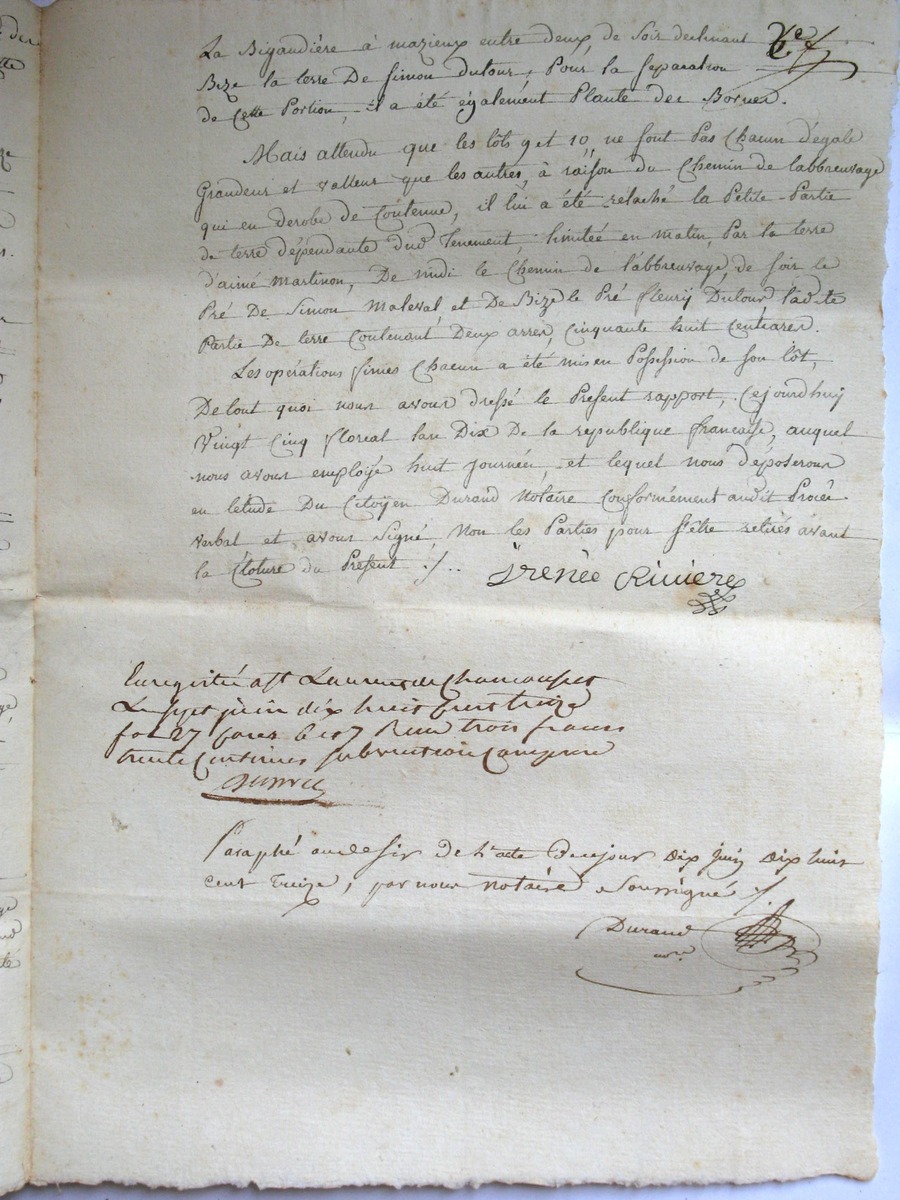 La Bigaudière à mazieux entre deux de Soir declinant
Bize la terre De Simon dutour, Pour la Separation
de Cette Portion, il a été également Planté des Bornes.
Mais attendu que les lôts 9 et 10, ne sont Pas Chacun d'égale
Grandeur et valleur que les autres, à raison du Chemin de l'abbreuvage
qui en derobe de Contenue, il lui a été relaché la Petite Partie
de terre dépendante dud Tenement, limitée en matin, Par la terre
d'aimé Martinon, De midi le Chemin de l'abbreuvage, de soir le
Pré De Simon Maleval, et De Bize le Pré fleury Dutour ladite
Partie De terre Contenant Deux arres, Cinquante huit Centiares.
Les opérations finies Chacun a été mis en Possession de son lôt,
De tout quoi nous avons dressé le Présent rapport, Cejourdhuy
Vingt Cinq floreal lan Dix De la republique francaise, auquel
nous avons employé huit journée et lequel nous déposerons
en létude Du Citoyen Durand Notaire Conformément audit Procès
verbal et avons Signé Non les Parties pour s'être retirés avant
la Cloture du Présent ./..
Irenée Riviere
Enregistré a St Laurent de Chamousset
Le sept juin dix huit cent treize
fol 27 Reçu trois francs
trente Centimes subvention Comprise
Paraphé au desir de l'acte de cejour dix juin dix huit
cent treize, par nous notaire soussigné ./.
Durand
nore